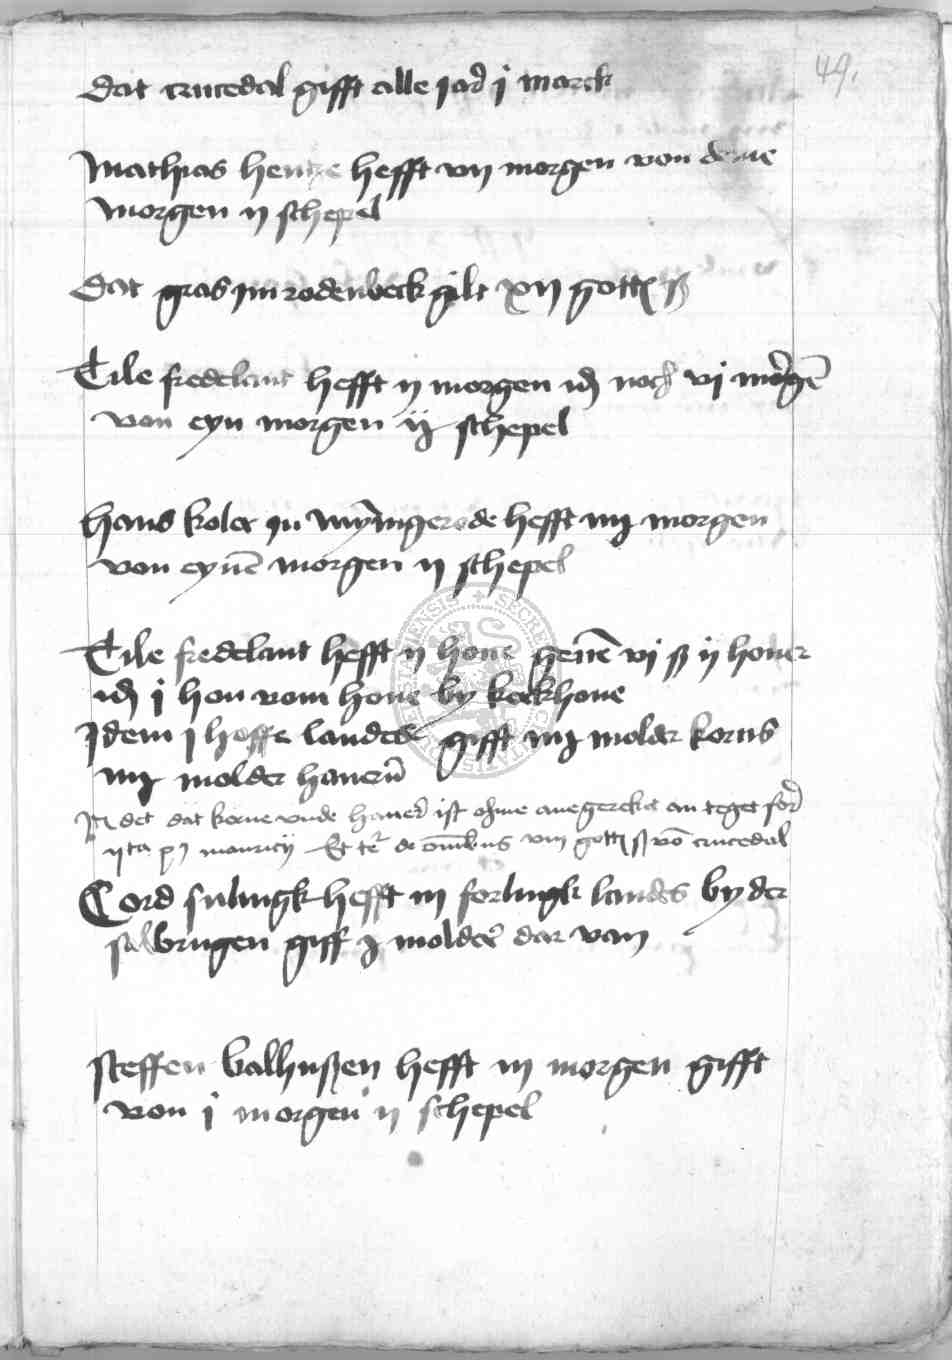 49.
dat crucedal gifft alle jar j marck
Mathias hentze hefft vij morgen von deme
morgen ij schepel
dat gras im rodenbeck gilt xij gott ß
Tile fredelant hefft ij morgen id noch vj morgē
von eyn morgen ij schepel
hans koler in wyningerode hefft iiij morgen
von eynē morgen ij schepel
Tile fredelant hefft ij houe geuē vj ß ij honer
id j hon vom houe by keckhoue
Idem j hoffe landes gifft iiij molder korns
iiij molder hauerū
It det dat korne vnde hauer ist ohme auegereket an teget for
ijta p mauricij Et te de omibus viij gott ß vō crucedal
Cord sulingk hefft iij forlingk landes by der
salbrugen giff j molder dar van
Steffen balhußen hefft iij morgen gifft
von j morgen ij schepel